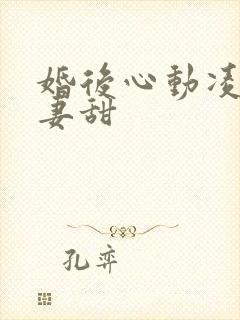 婚後心動凌
妻甜
孔弈